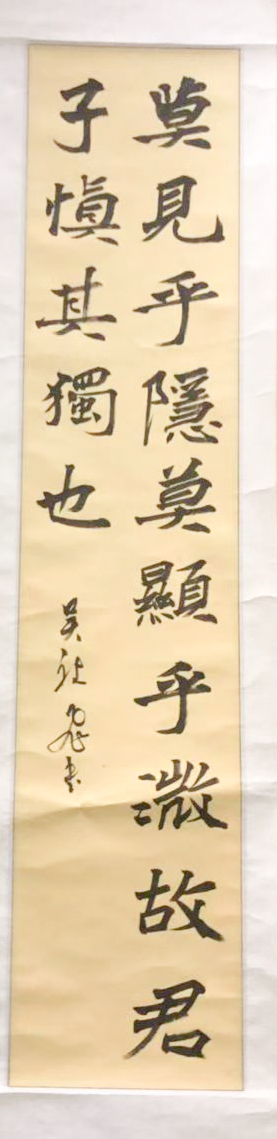 莫見乎隱莫顯乎溦故君
子慎其獨也
吴 書